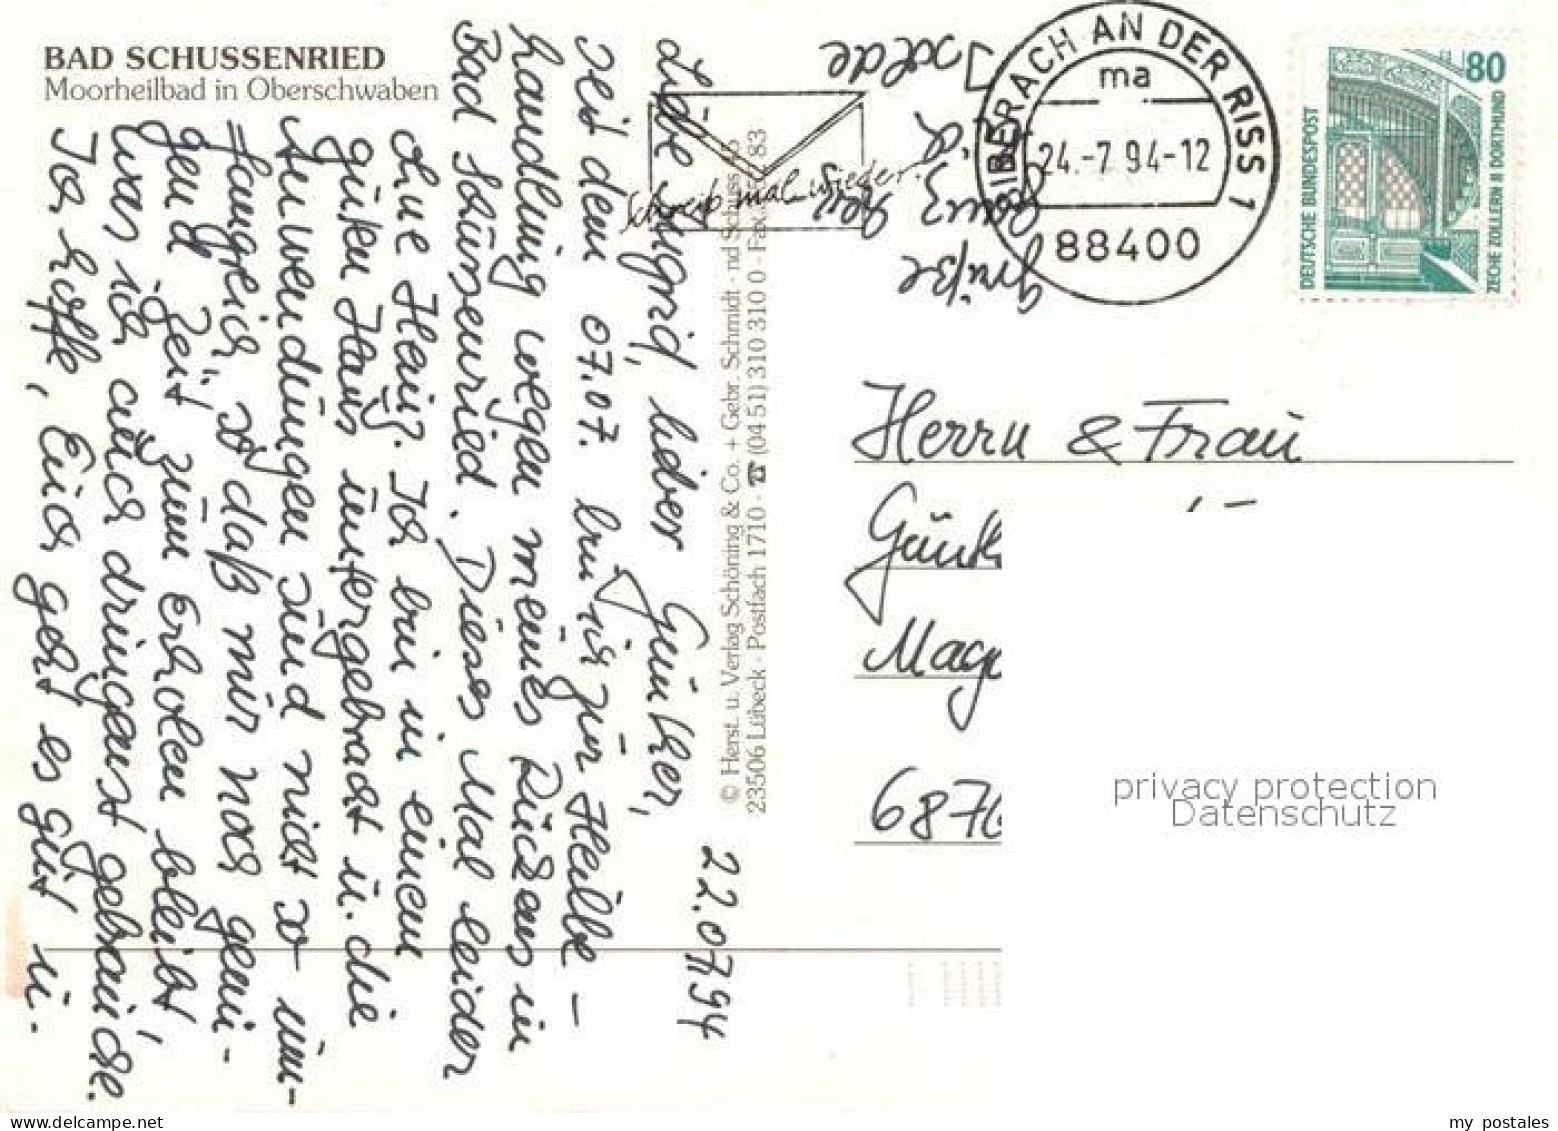 BAD SCHUSSENRIED
Moorheilbad in Oberschwaben
22.07.94
Liebe Ingrid, lieber Günther,
seit dem 07.07. bin ich zur Heilbe-
handlung wegen meines Rückens in
Bad Schussenried. Dieses Mal leider
ohne Heinz. Ich bin in einem
guten Haus untergebracht u. die
Anwendungen sind nicht so um-
fangreich, so daß mir noch genü-
gend Zeit zum Erholen bleibt,
was ich auch dringenst gebrauche.
Ich hoffe, Euch geht es gut u.
Grüße
Heinz u.
Isolde
Schreib mal wieder.
© Herst. u. Verlag Schöning & Co. + Gebr. Schmidt
23506 Lübeck · Postfach 1710 · ☎ (04 51) 310 310 0 · Fax 83
BIBERACH AN DER RISS 1
ma
24.-7.94-12
88400
80
DEUTSCHE BUNDESPOST
ZECHE ZOLLERN II DORTMUND
Herrn & Frau
Günth
Mag
6876
privacy protection
Datenschutz
my postales